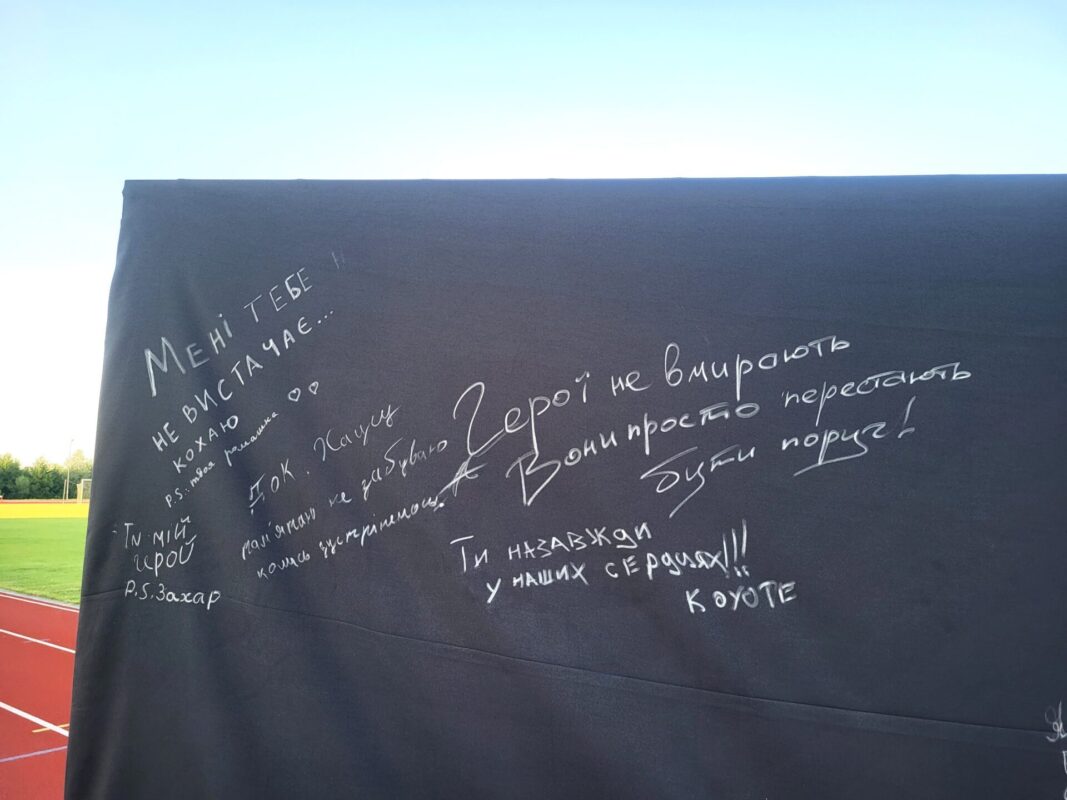 Мені тебе
не вистачає...
кохаю
P.S. твоя ромашка ♡♡
Ти мій
герой
P.S. Захар
Док.
пам'ятаю не забуваю
колись зустрінемось.
Герої не вмирають
Вони просто перестають
бути поруч!
Ти назавжди
у наших серцях!!!
КОУОТЕ